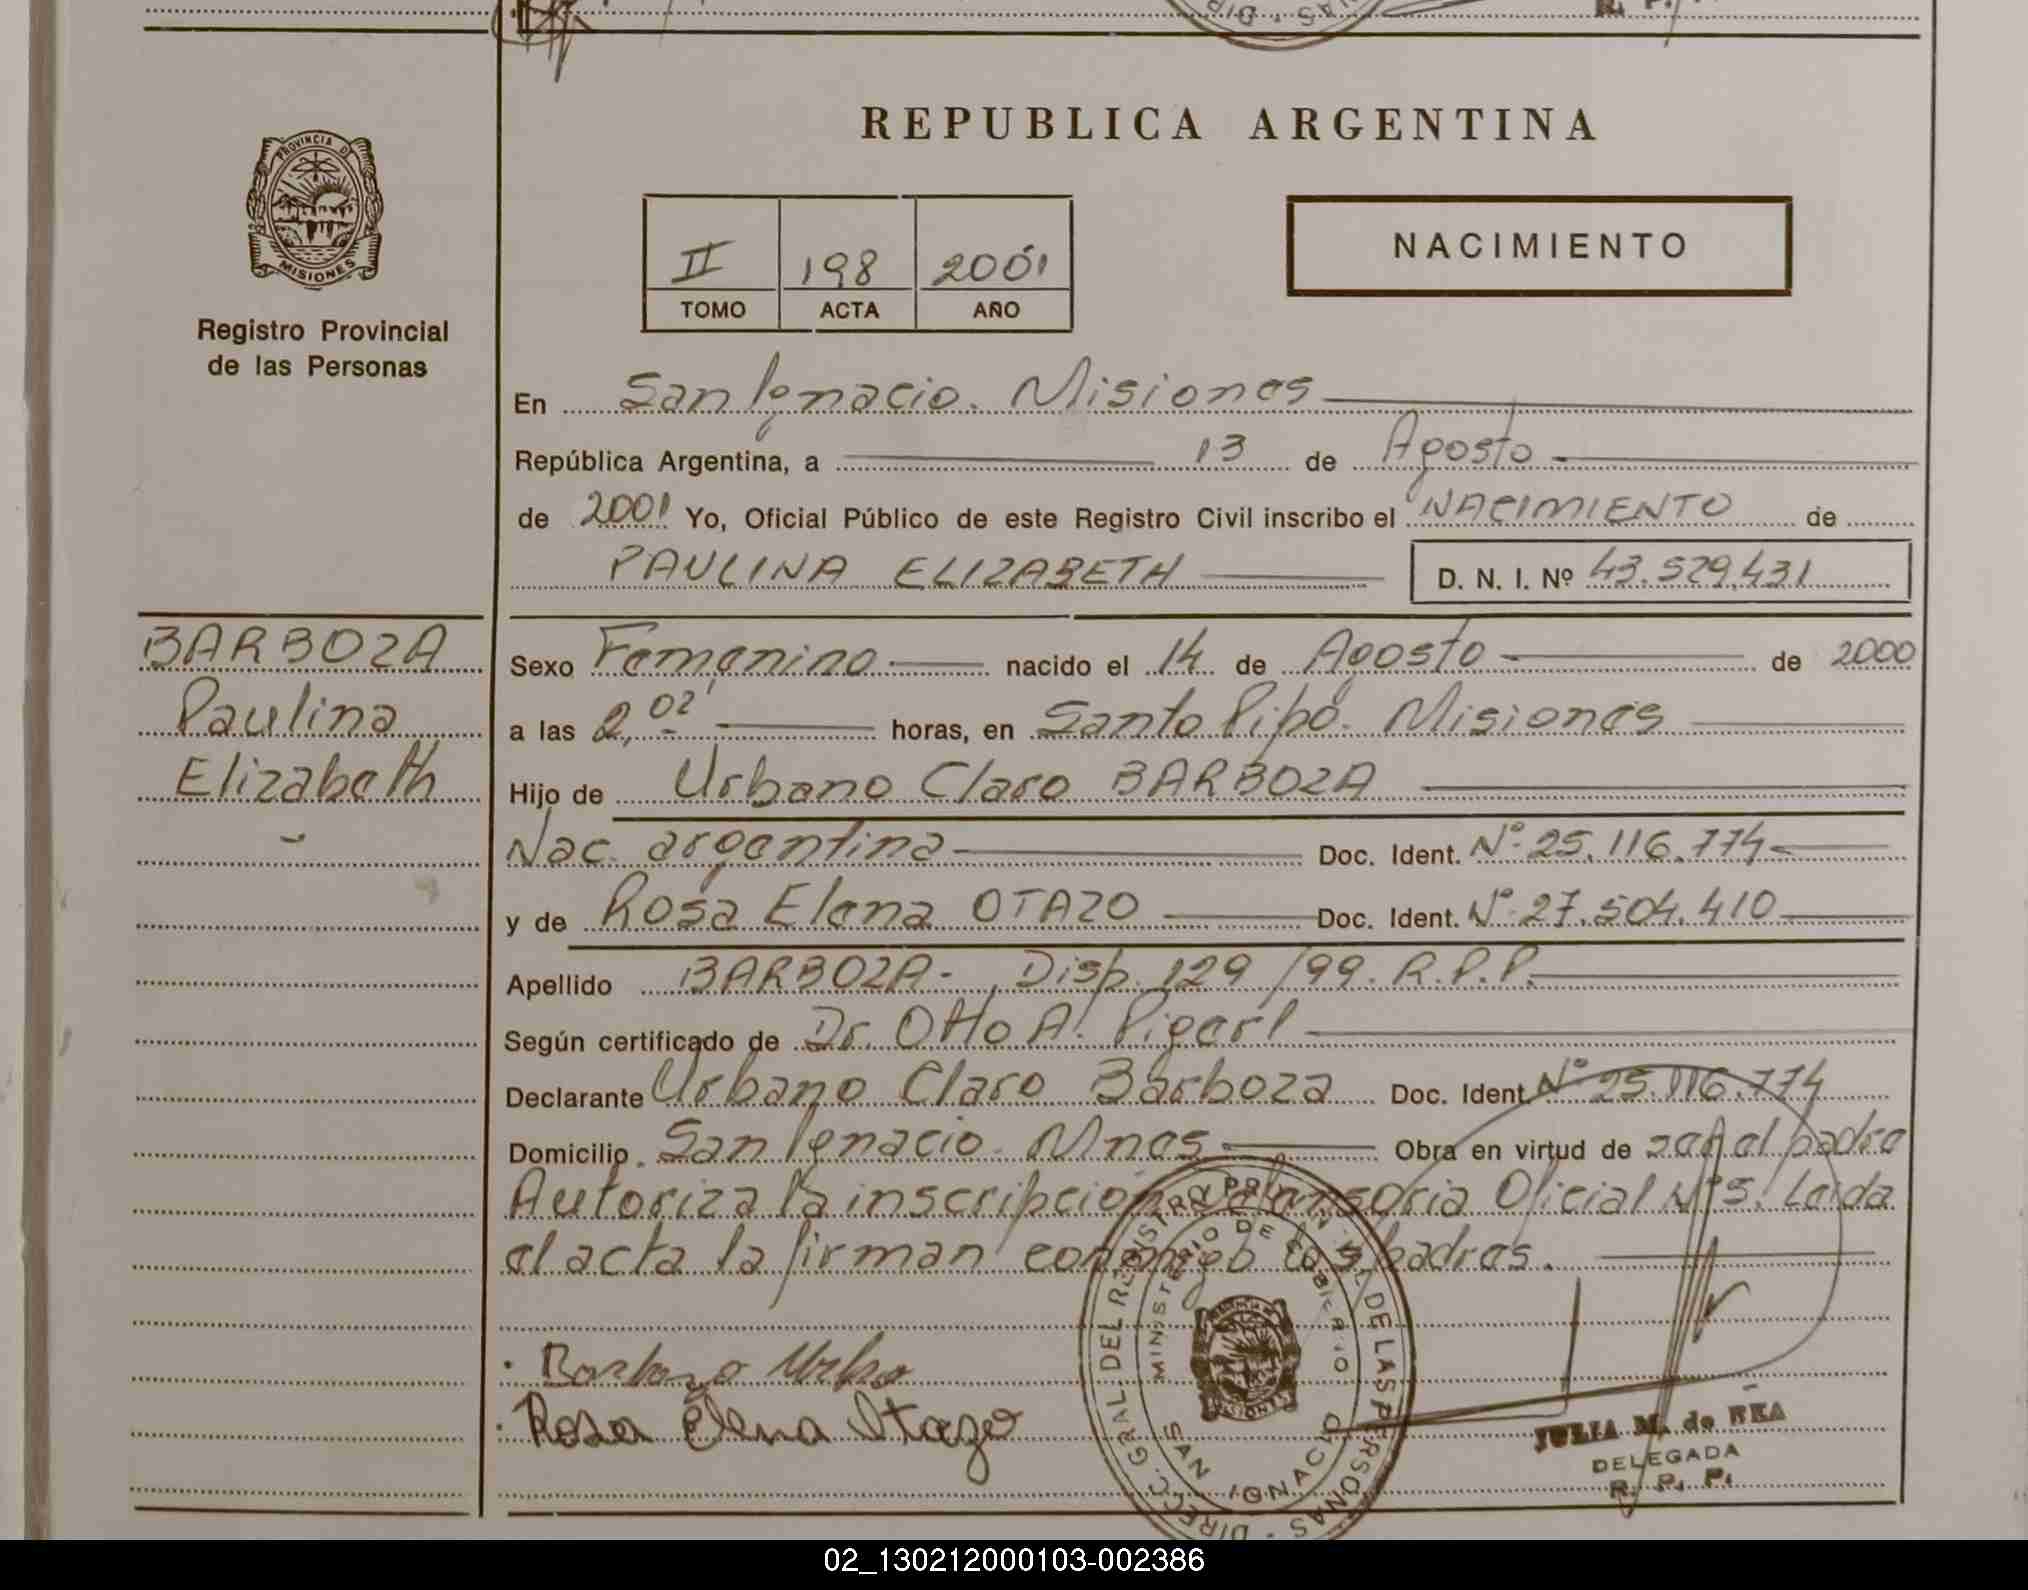 REPUBLICA ARGENTINA
PROVINCIA DE
MISIONES
Registro Provincial
de las Personas
II 198 2001
TOMO ACTA AÑO
NACIMIENTO
En San Ignacio. Misiones
República Argentina, a 13 de Agosto
de 2001 Yo, Oficial Público de este Registro Civil inscribo el NACIMIENTO de
PAULINA ELIZABETH D. N. I. Nº 43.529.431
BARBOZA
Paulina
Elizabeth
Sexo Femenino nacido el 14 de Agosto de 2000
a las 2,02' horas, en Santo Pipó. Misiones
Hijo de Urbano Claro BARBOZA
Nac. argentina Doc. Ident. Nº 25.116.774
y de Rosa Elena OTAZO Doc. Ident. Nº 27.504.410
Apellido BARBOZA- Disp. 129/99. R.P.P.
Según certificado de Dr. Otto A.
Declarante Urbano Claro Barboza Doc. Ident. Nº 25.116.774
Domicilio San Ignacio. Mnes Obra en virtud de ser el padre
Autoriza la inscripción Defensoría Oficial Nº 5. Leida
el acta la firman conmigo los padres.
Barboza Urbano
Rosa Elena Otazo
DIRECC. GRAL DEL REGISTRO PROVINCIAL DE LAS PERSONAS
MINISTERIO DE GOBIERNO
SAN IGNACIO
MISIONES
JULIA M. de REA
DELEGADA
R. P. P.
02_130212000103-002386